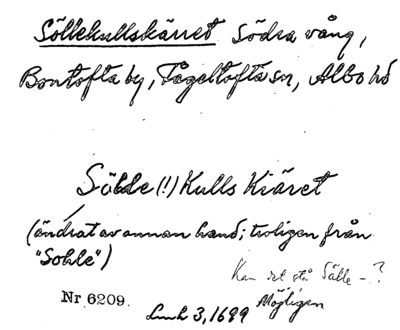 Söllekullskärret Södra vång,
Bontofta by, Fågeltofta sn, Albo hd
Sölde (!) Kulls Kiäret
(ändrat av annan hand; troligen från
"Sohle")
Kan det stå Sälle - ?
Möjligen
Nr 6209.
Lmh 3, 1699